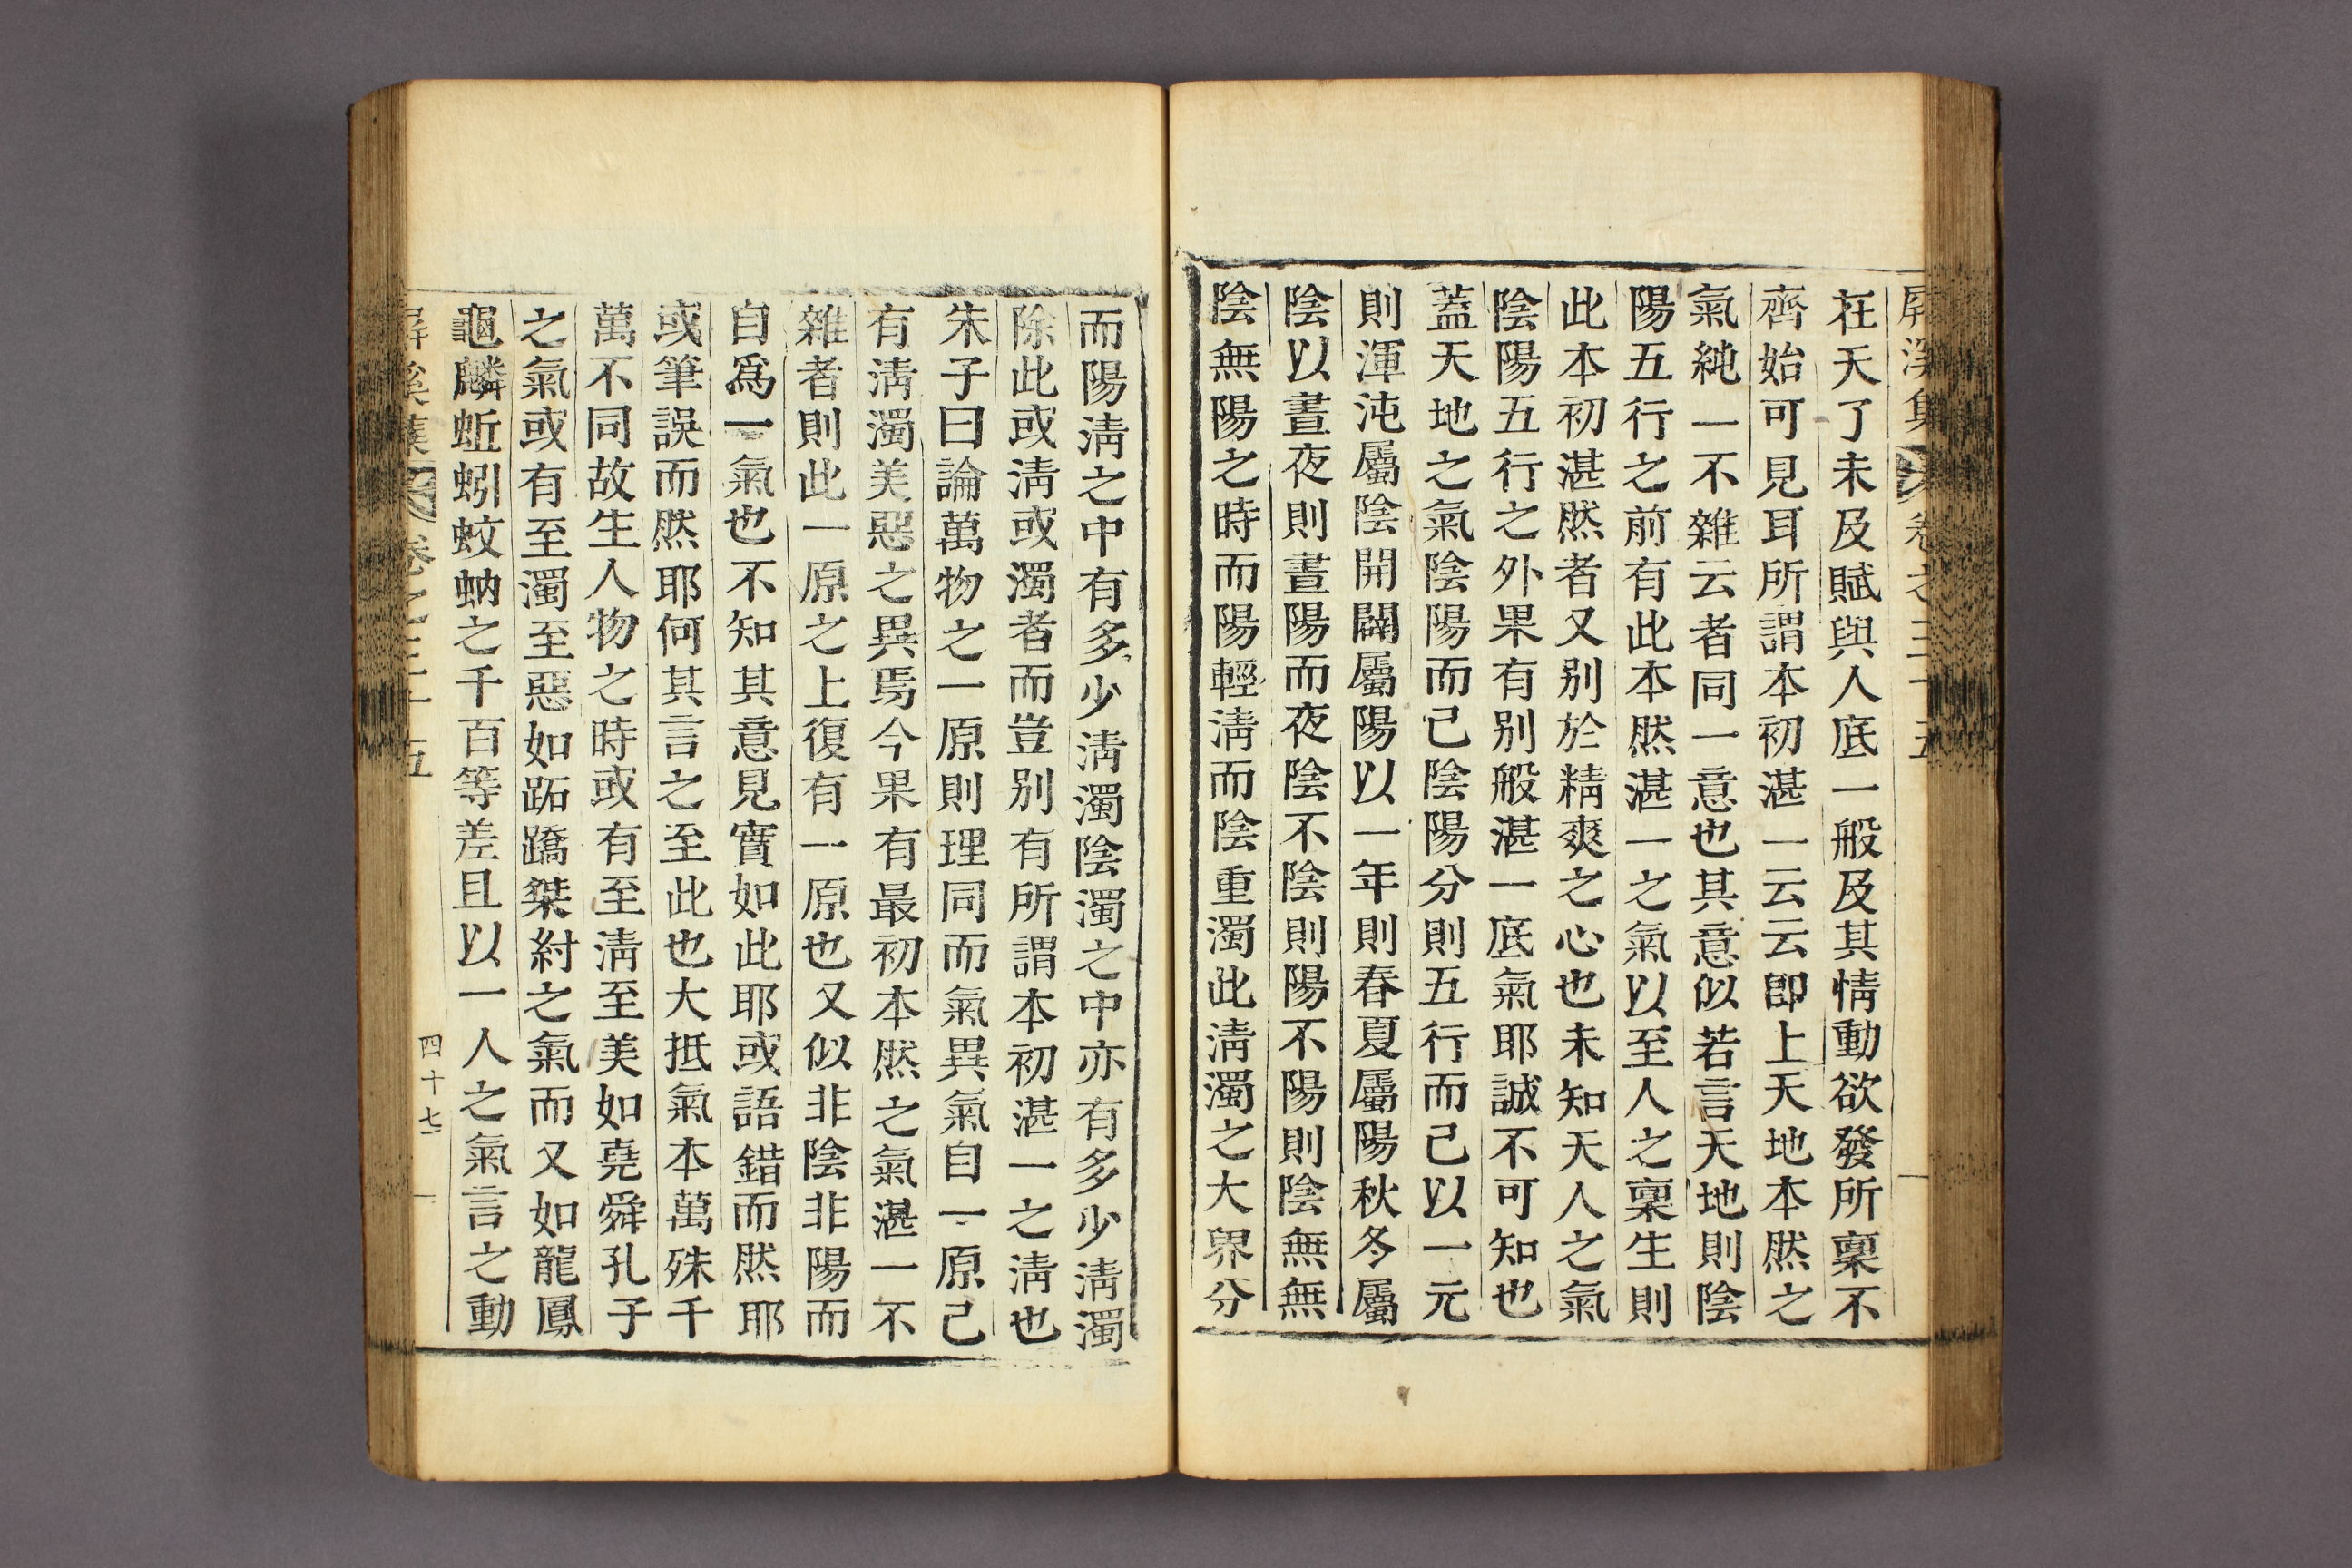 屏溪集 卷之三十五
在天了未及賦與人底一般及其情動欲發所稟不
齊始可見耳所謂本初湛一云云卽上天地本然之
氣純一不雜云者同一意也其意似若言天地則陰
陽五行之前有此本然湛一之氣以至人之稟生則
此本初湛然者又别於精爽之心也未知天人之氣
陰陽五行之外果有别般湛一底氣耶誠不可知也
蓋天地之氣陰陽而已陰陽分則五行而已以一元
則渾沌屬陰開闢屬陽以一年則春夏屬陽秋冬屬
陰以晝夜則晝陽而夜陰不陰則陽不陽則陰無無
陰無陽之時而陽輕淸而陰重濁此淸濁之大界分
而陽淸之中有多少淸濁陰濁之中亦有多少淸濁
除此或淸或濁者而豈别有所謂本初湛一之淸也
朱子曰論萬物之一原則理同而氣異氣自一原已
有淸濁美惡之異焉今果有最初本然之氣湛一不
雜者則此一原之上復有一原也又似非陰非陽而
自爲一氣也不知其意見實如此耶或語錯而然耶
或筆誤而然耶何其言之至此也大抵氣本萬殊千
萬不同故生人物之時或有至淸至美如堯舜孔子
之氣或有至濁至惡如跖蹻桀紂之氣而又如龍鳳
龜麟蚯蚓蚊蚋之千百等差且以一人之氣言之動
屏溪集 卷之三十五 四十七